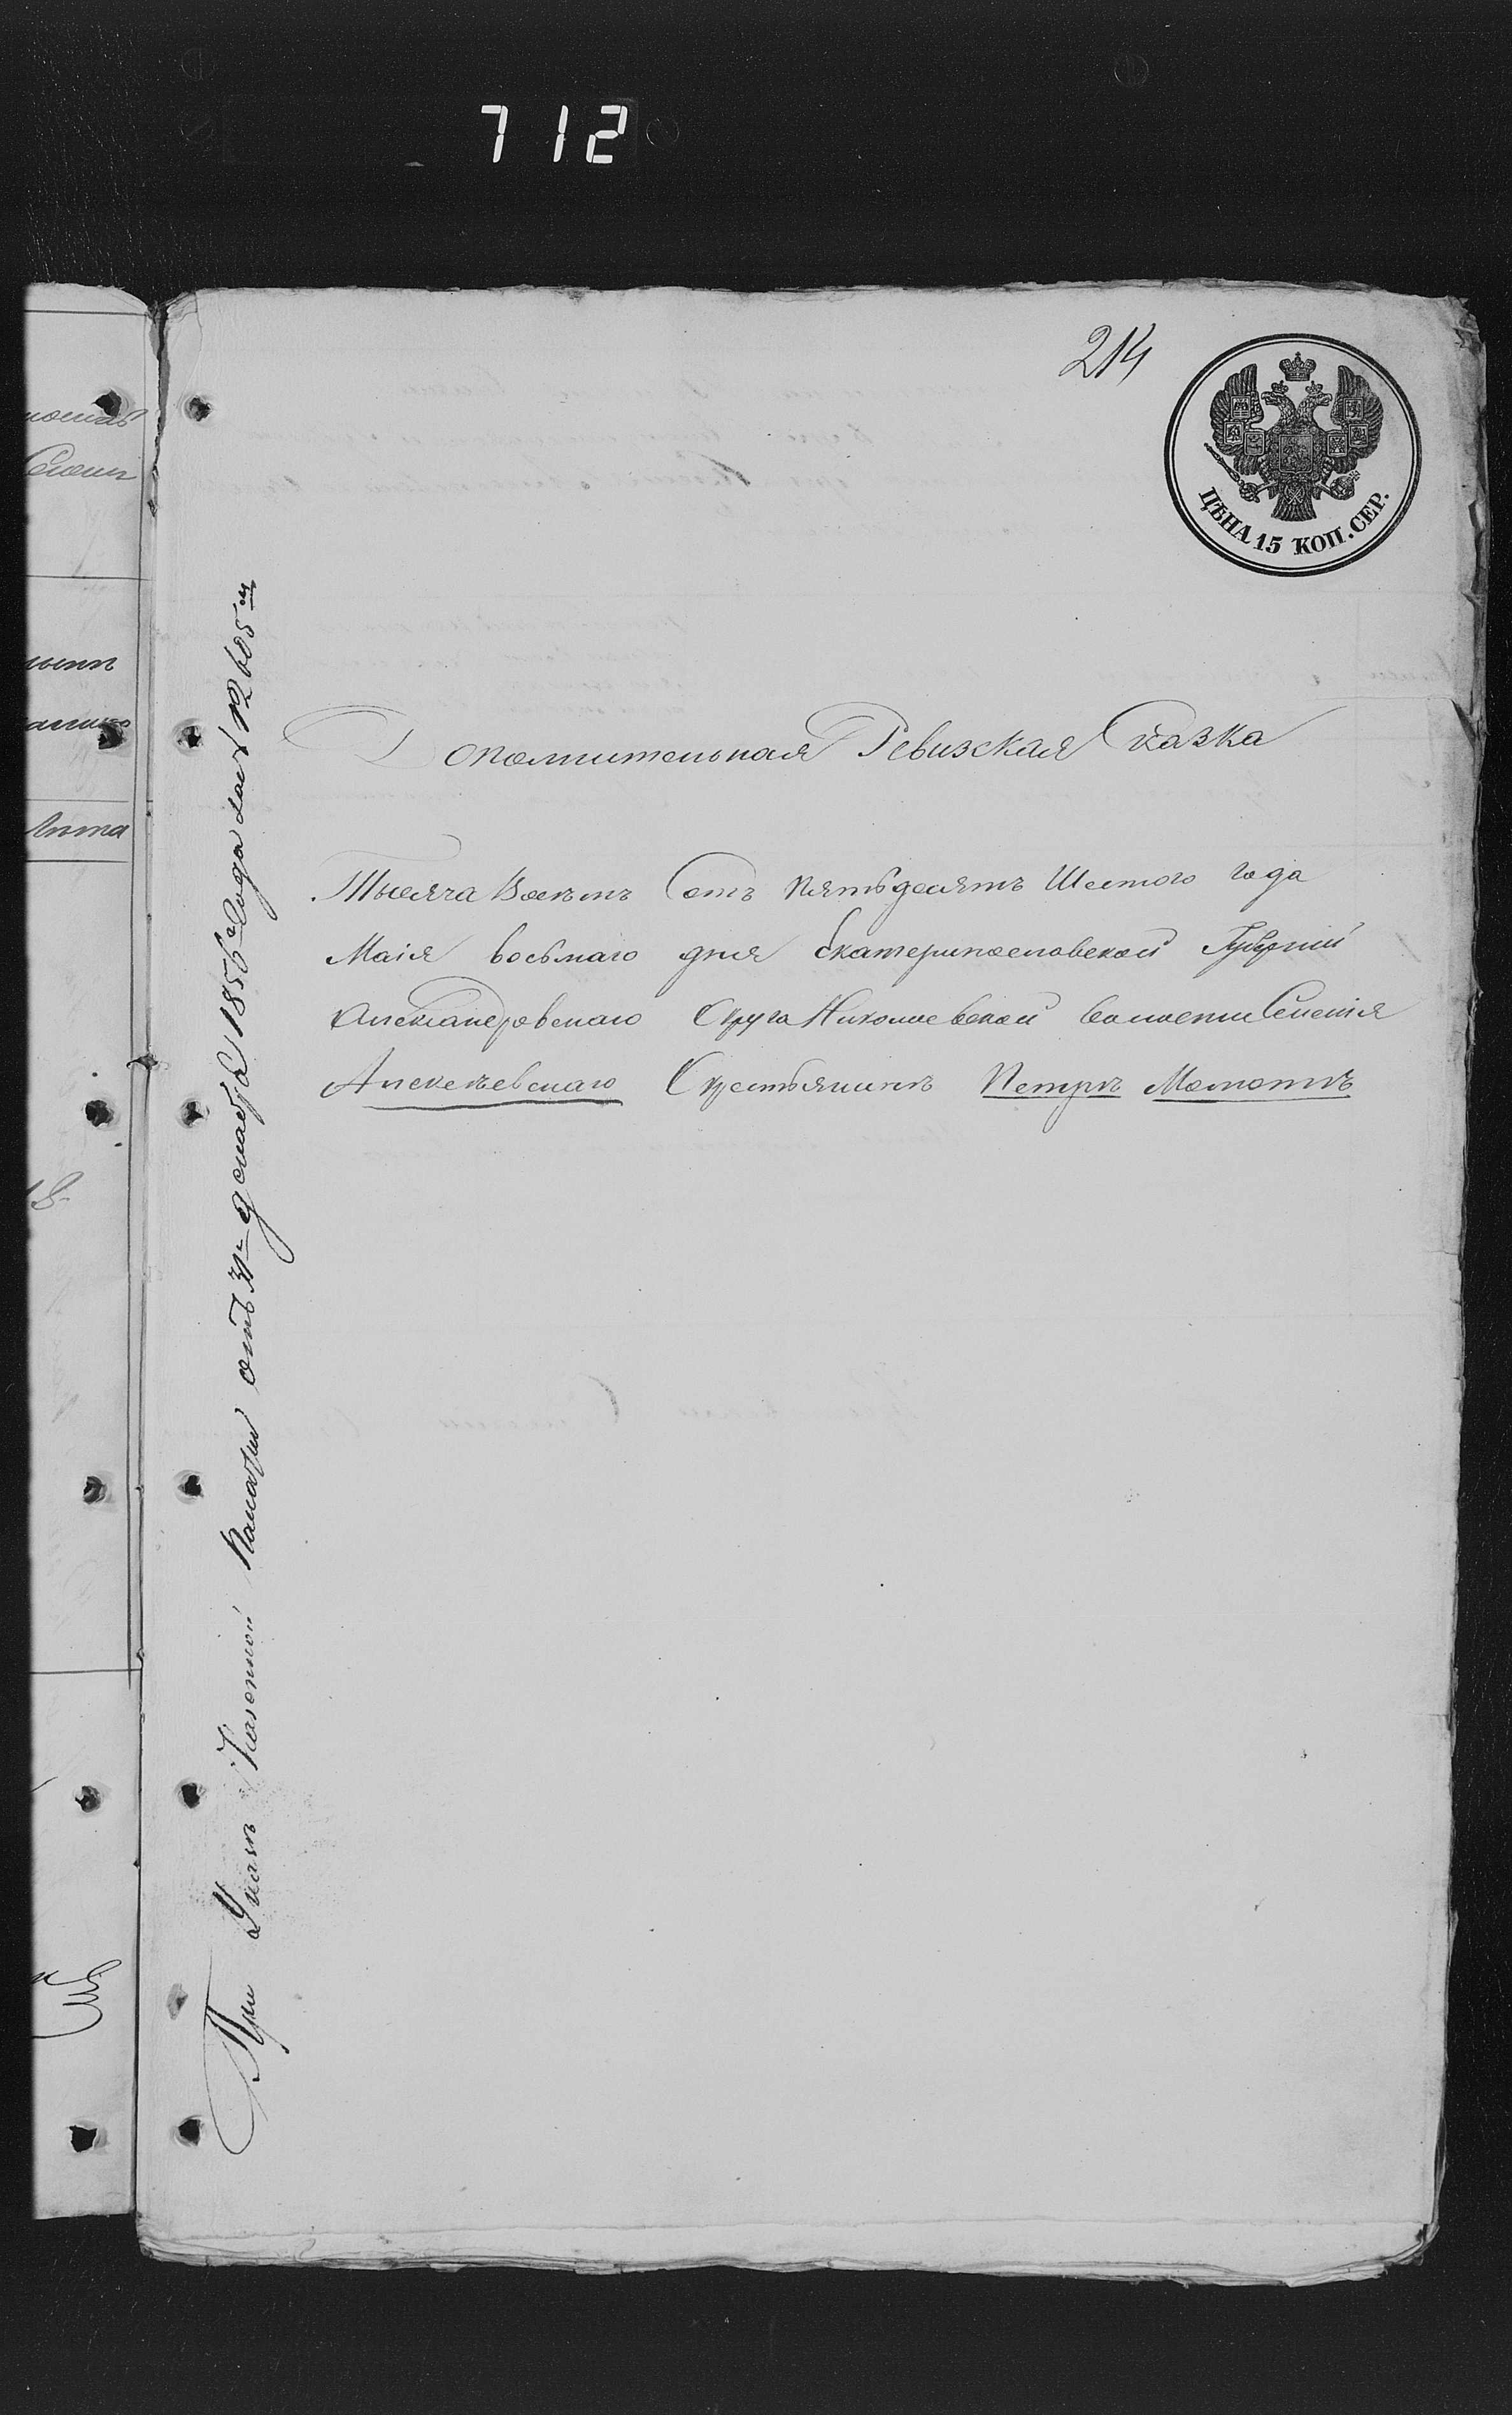 712
214
ЦѢНА 15 КОП. СЕР.
Дополнительная Ревизская Сказка
Тысяча Восѣмъ Сотъ пятьдесятъ Шестого года
Маія восьмаго дня Екатеринославской Губерніи
Александровскаго Округа Николаевской волости Селенія
Алексѣевскаго Крестьянинъ Петръ Момотъ
При Указѣ Казенной Палаты отъ 31го декабря 1856 Года за № 12605м